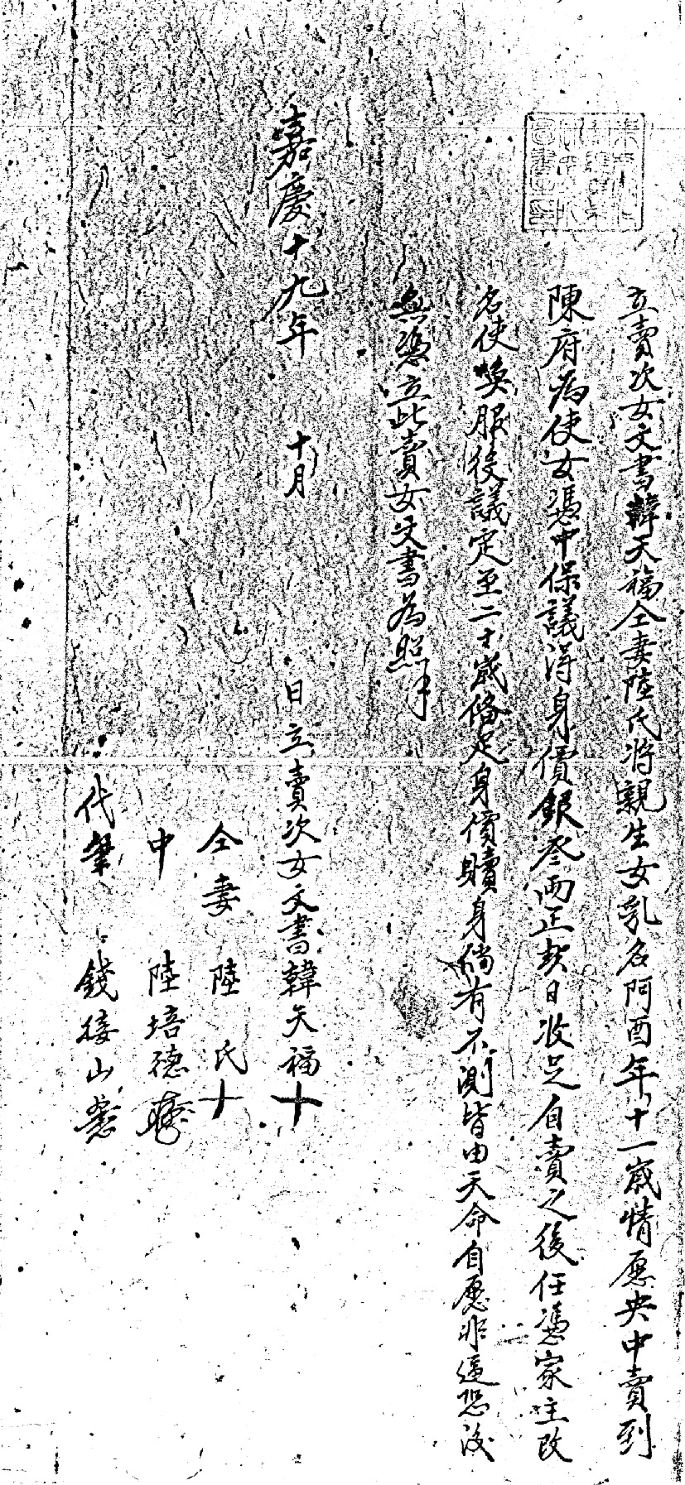 立賣次女文書韓天福仝妻陸氏將親生女乳名阿酉年十一歲情愿央中賣到
陳府為使女憑中保議得身價銀叁兩正契日收足自賣之後任憑家主改
名使喚服役議定至二十歲備足身價贖身倘有不測皆由天命自愿非逼恐後
無憑立此賣女文書為照
嘉慶十九年 十月 日立賣次女文書韓天福十
仝妻陸氏十
中 陸培德
代筆 錢接山